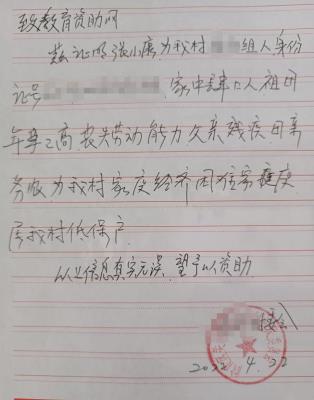 致教育资助网
兹证明张小康为我村 组人身份
证号 家中肆口人祖母
年事已高丧失劳动能力父亲残疾母亲
务农为我村家庭经济困难家庭
属我村低保户
以上信息真实无误望予以资助
2022 4.22